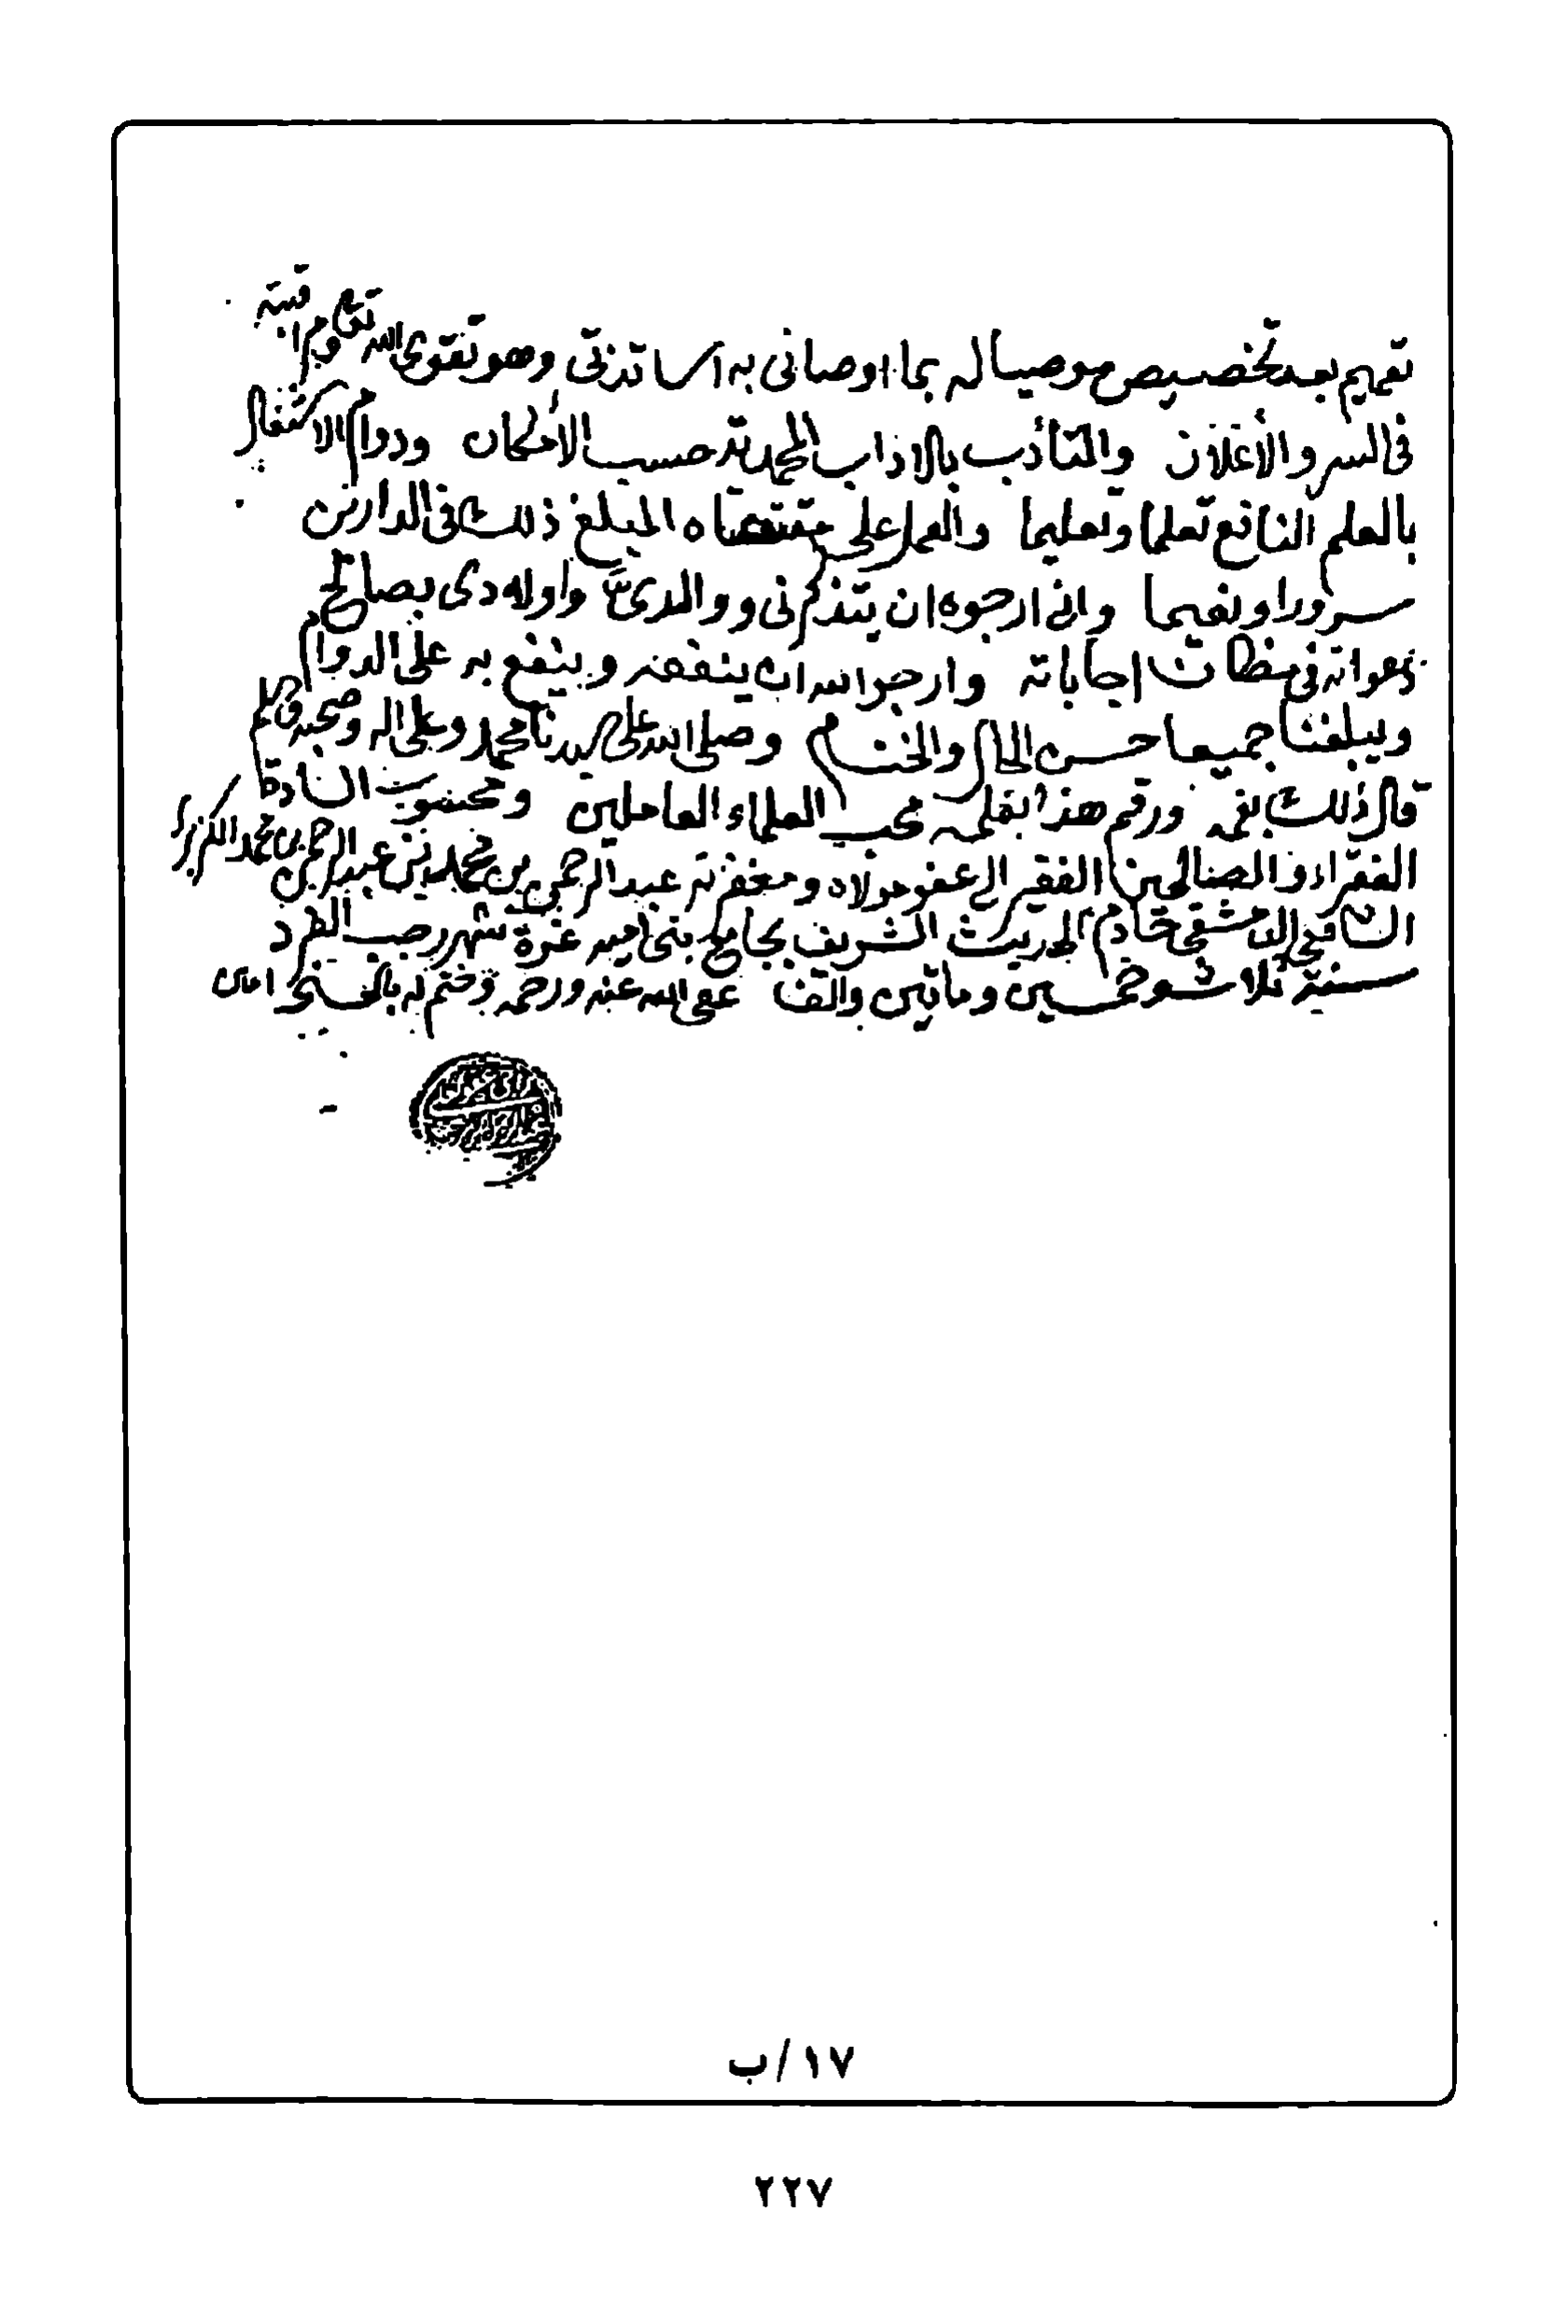 تعميم بعد تخصيص موصيا له بما اوصاني به اساتذتي وهو تقوى الله تعالى ومراقبته
في السر والاعلان والتأدب بالاداب المحمدية حسب الامكان ودوام الاشتغال
بالعلم النافع تعلما وتعليما والعمل على مقتضاه المبلغ ذلك في الدارين
سرورا ونعيما واني ارجوه ان يتذكرني ووالدي واولادي بصالح
دعواته في مظان اجاباته وارجو الله ان ينفعه وينفع به على الدوام
ويبلغنا جميعا حسن الحال والختام وصلى الله على سيدنا محمد وعلى اله وصحبه وسلم
قال ذلك بفمه ورقم هذا بقلمه محب العلماء العاملين ومحسوب السادة
الفقراء والصالحين الفقير الى عفو مولاه ومغفرته عبد الرحمن بن محمد بن عبد الرحمن بن محمد الكزبري
الشافعي الدمشقي خادم الحديث الشريف بجامع بني اميه غرة شهر رجب الفرد
سنة ثلاث وخمسين ومائتين والف عفى الله عنه ورحمه وختم له بالحسنى امين
١٧/ب
٢٢٧